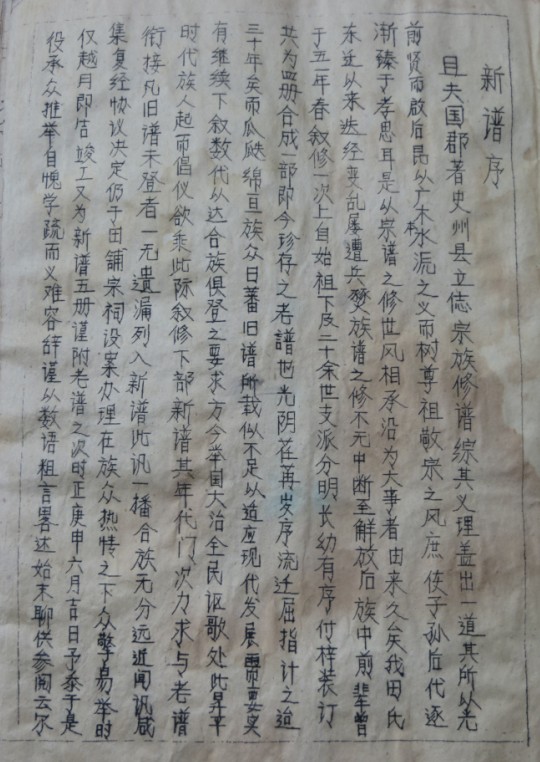 新谱序
且夫国郡著史州县立志宗族修谱综其义理盖出一道其所以光
前贤而啟后昆以广木本水沅之义而树尊祖敬宗之风庶俟子孙后代逐
渐臻于孝思耳是从宗谱之修世风相承沿为大事者由来久矣我田氏
东迁以来迭经变乱屡遭兵燹族谱之修不无中断至解放后族中前辈曾
于五一年春叙修一次上自始祖下及二十余世支派分明长幼有序付梓装订
共为四册合成一部即今珍存之老譜也光阴荏苒岁序流迁屈指计之迨
三十年矣而瓜瓞绵亘族众日蕃旧谱所载似不足以适应现代发展需要实
有继续下叙数代以达合族俱登之要求方今举国大治全民讴歌处此昇平
时代族人起而倡仪欲乘此际叙修下部新谱其年代门次力求与老谱
衔接凡旧谱未登者一无遗漏列入新谱此讯一播合族无分远近闻讯咸
集复经协议决定仍于田舖宗祠设案办理在族众热情之下众擎易举时
仅越月即告竣工又为新谱五册谨附老谱之次时正庚申六月吉日予忝于是
役承众推举自愧学疏而义难容辞谨以数语粗言畧达始末聊供参阅云尔